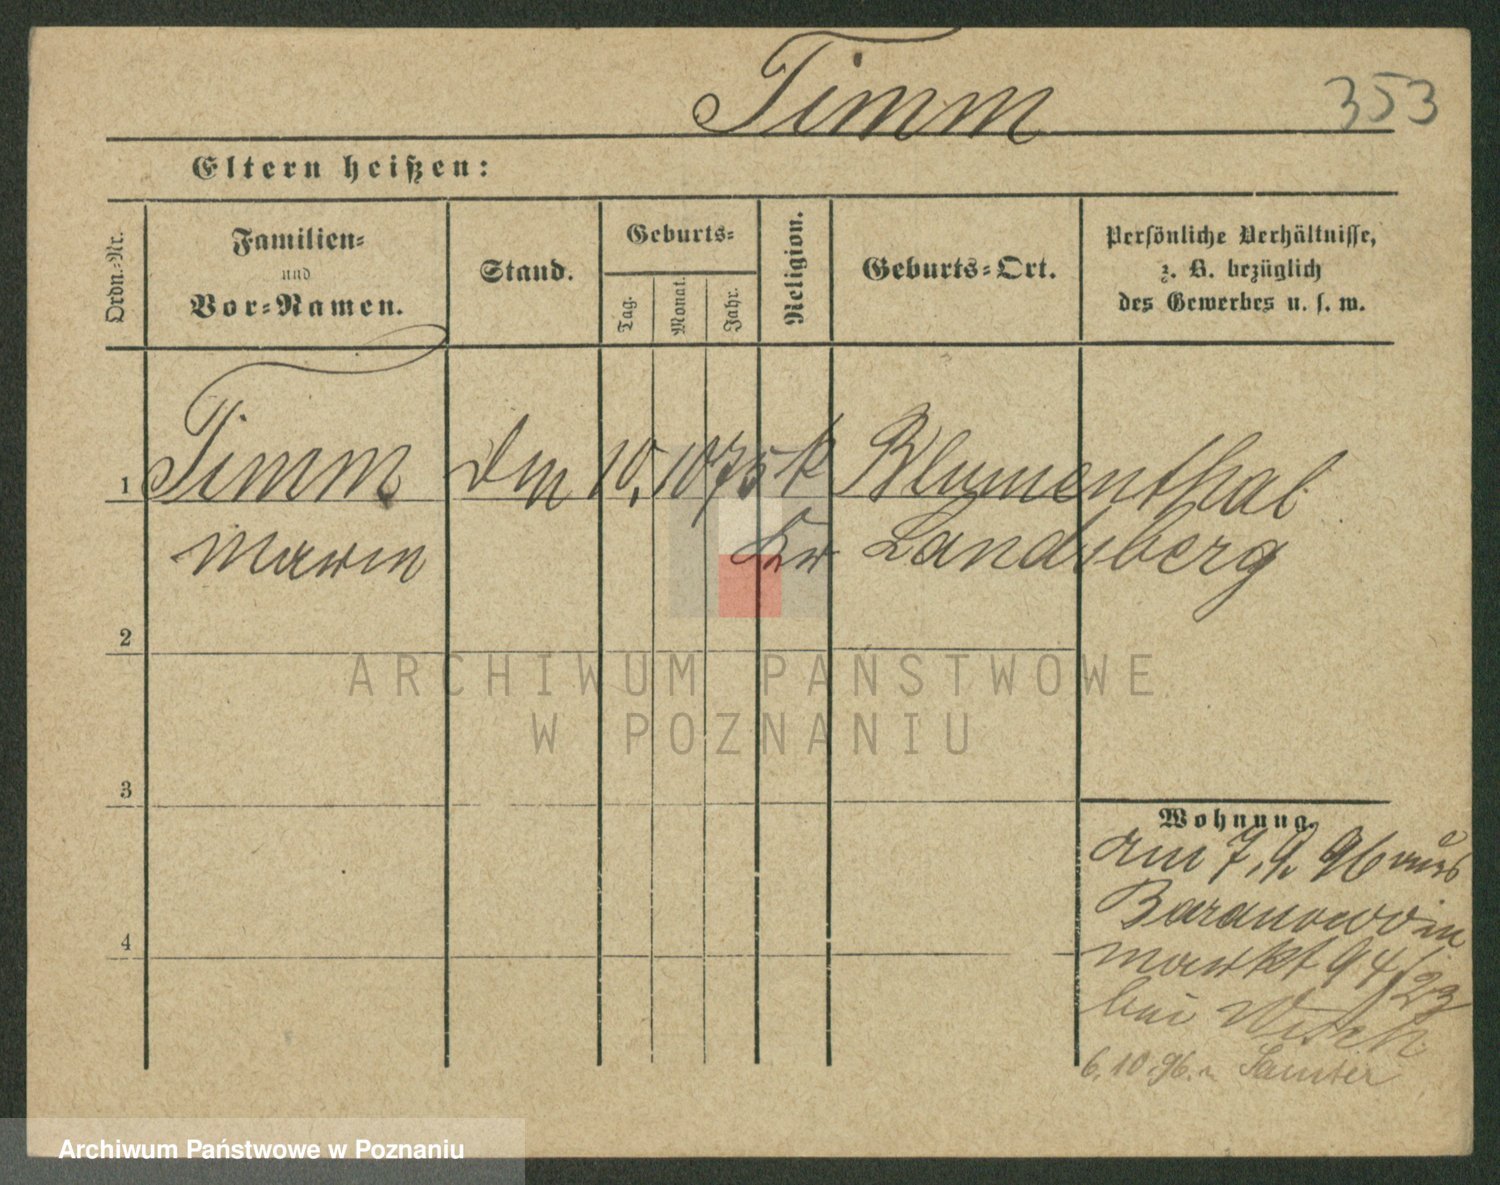 Timm 353
Eltern heißen:
Ordn.-Nr.
Familien-
und
Vor-Namen.
Stand.
Geburts-
Tag.
Monat.
Jahr.
Religion.
Geburts-Ort.
Persönliche Verhältnisse,
z. B. bezüglich
des Gewerbes u. s. w.
1 Timm 10. 10 75 k Blumenthal
Landsberg
2
ARCHIWUM PAŃSTWOWE
W POZNANIU
3
Wohnung.
am 7.9. 96 aus
Baranowo in
Markt 94/23
bei
4
6.10.96. n Samter
Archiwum Państwowe w Poznaniu